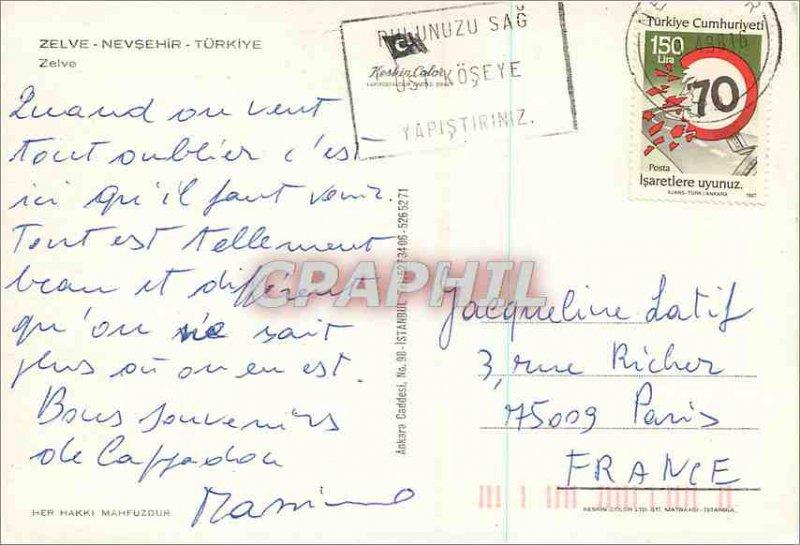 ZELVE - NEVŞEHİR - TÜRKİYE
Zelve
Quand on veut
tout oublier c'est
ici qu'il faut venir.
Tout est tellement
beau et différent
qu'on ne sait
plus où on en est.
Bons souvenirs
de Cappadoce
HER HAKKI MAHFUZDUR
PULUNUZU SAĞ
ÜST KÖŞEYE
YAPIŞTIRINIZ.
Keskin Color
Türkiye Cumhuriyeti
150
Lira
70
Posta
İşaretlere uyunuz.
AJANS-TÜRK/ANKARA 1987
Ankara Caddesi, No. 98-İSTANBUL
CPARAPHIL
Jacqueline Latif
3, rue Richer
75009 Paris
FRANCE
KESKİN COLOR LTD. ŞTİ. MATBAASI-İSTANBUL